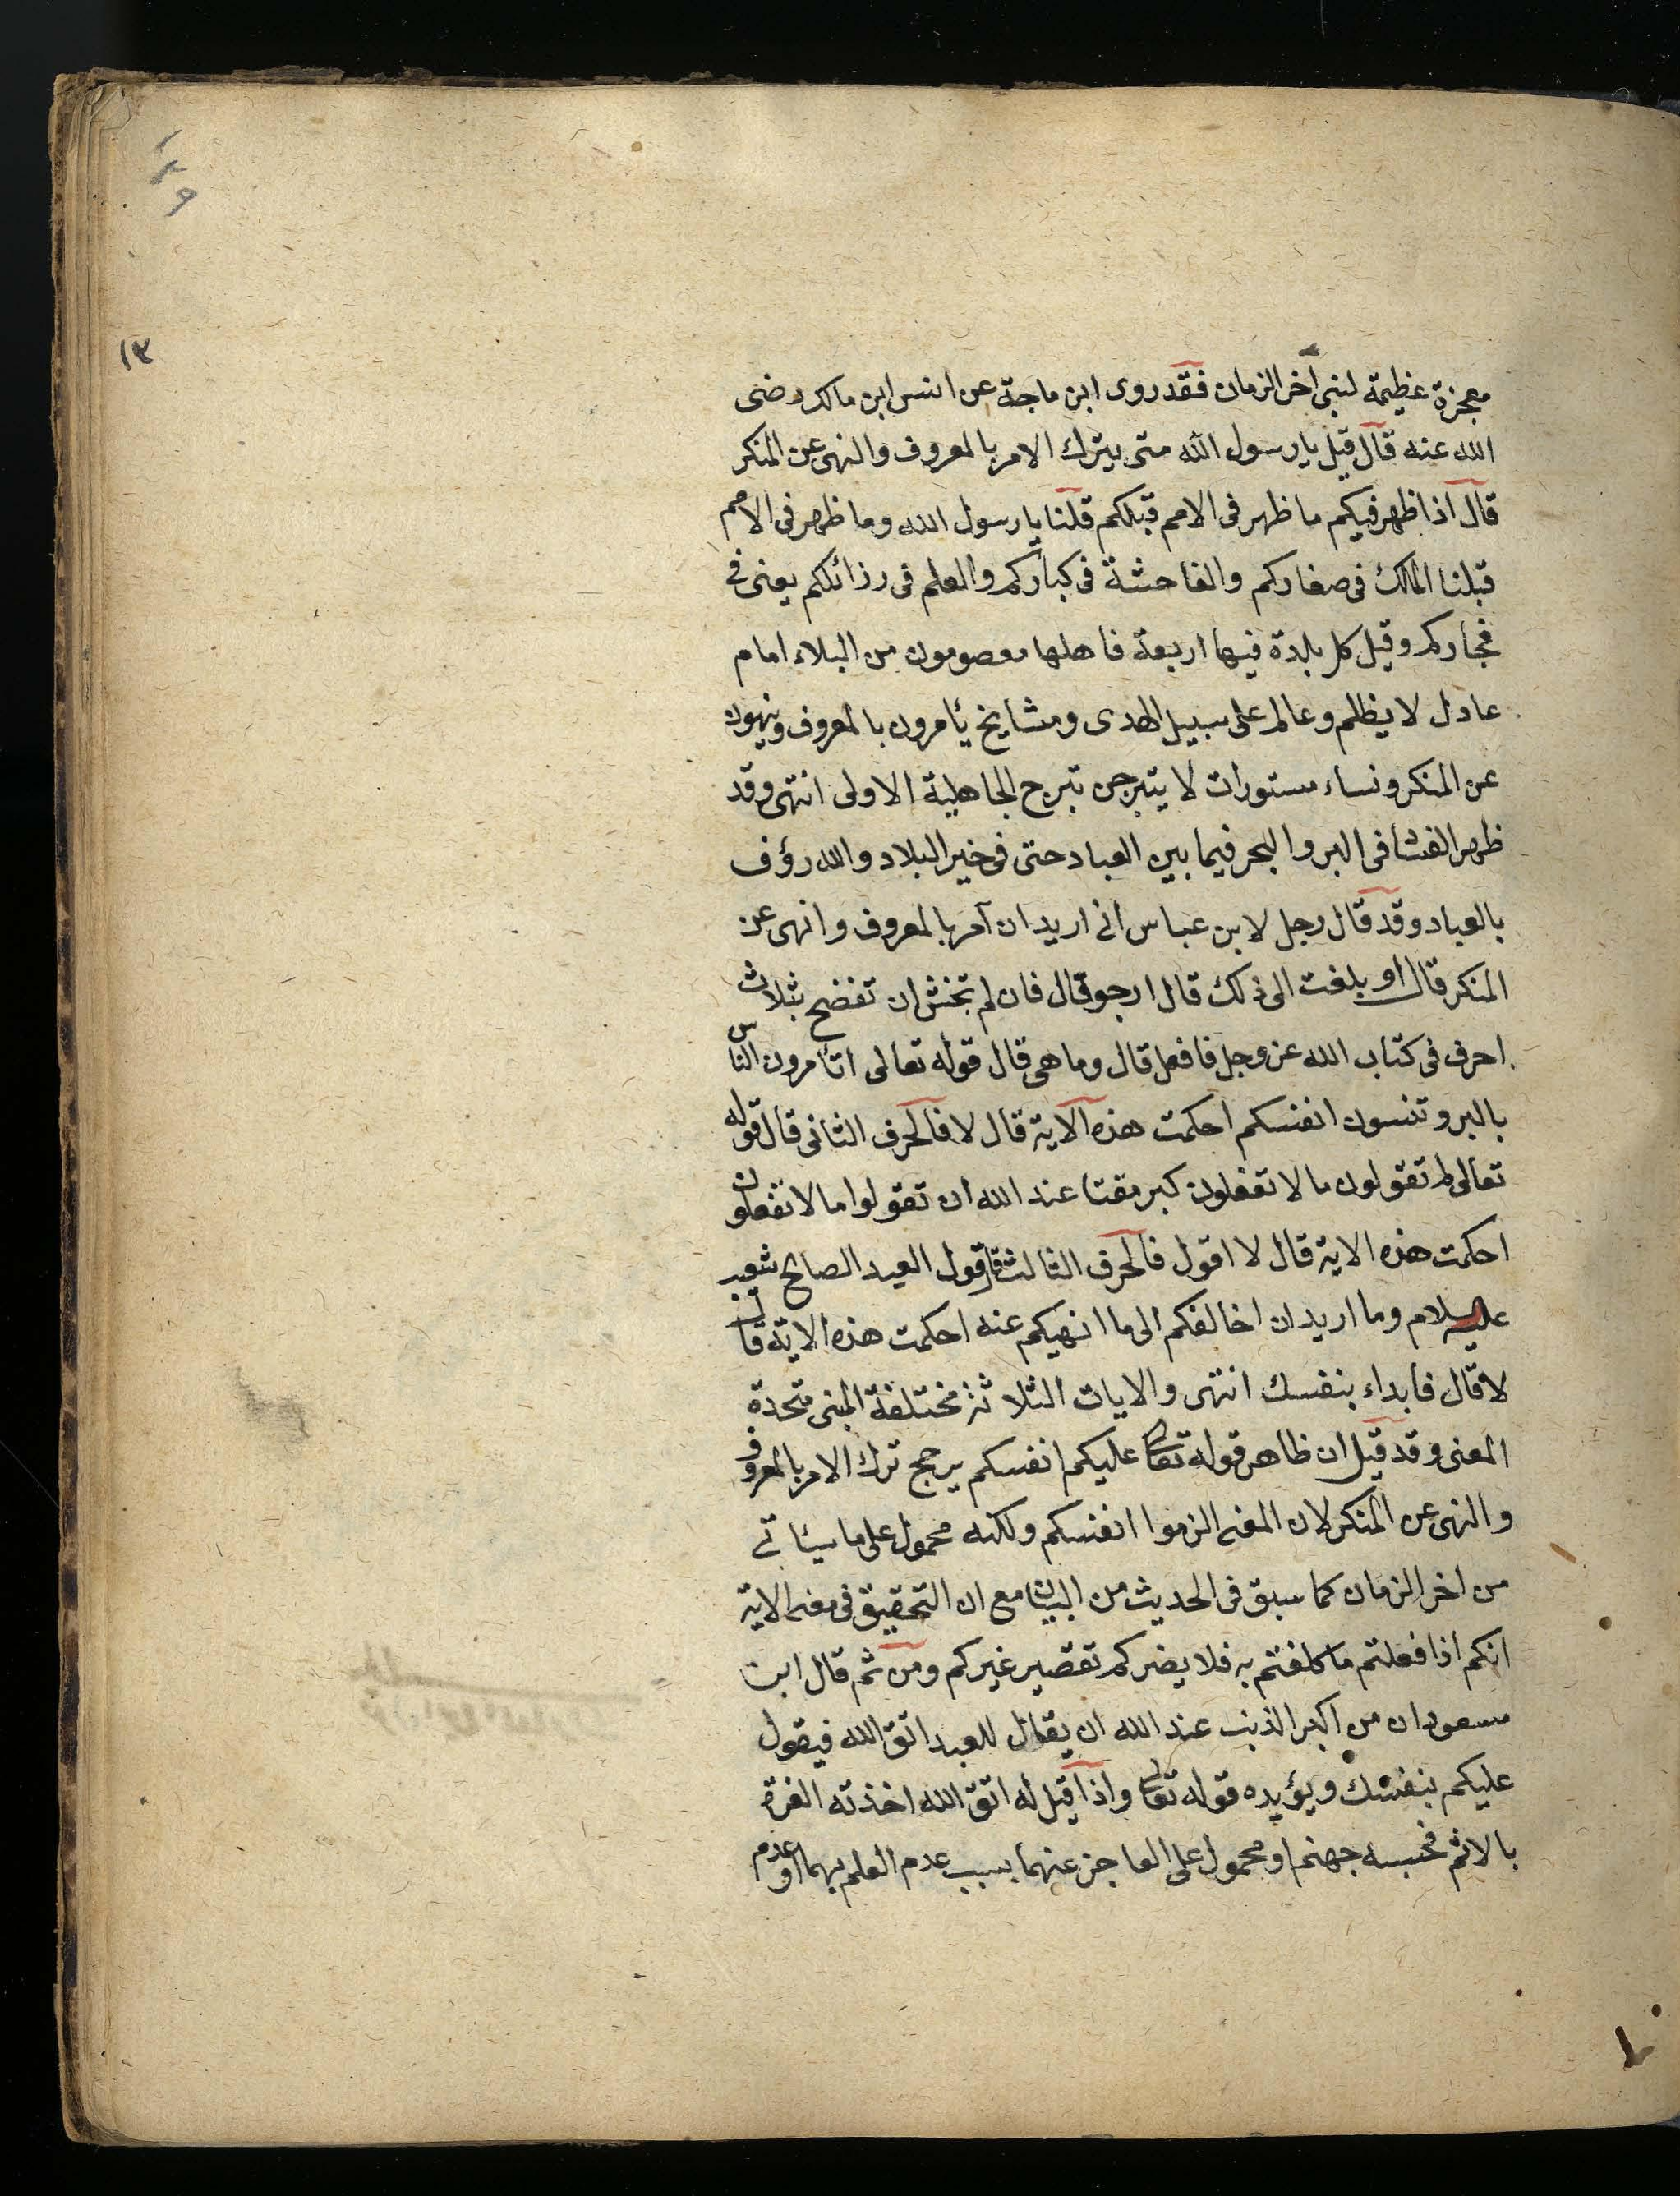 ١٣
معجزة عظيمة لنبى اخر الزمان فقد روى ابن ماجة عن انس ابن مالك رضى
الله عنه قال قيل يا رسول الله متى يترك الامر بالمعروف والنهى عن المنكر
قال اذا ظهر فيكم ما ظهر فى الامم قبلكم قلنا يا رسول الله وما ظهر فى الامم
قبلنا الملك فى صغاركم والفاحشة فى كباركم والعلم فى رزائلكم يعنى فى
فجاركم وقيل كل بلدة فيها اربعة فاهلها معصومون من البلاء امام
عادل لا يظلم وعالم على سبيل الهدى ومشايخ يأمرون بالمعروف وينهون
عن المنكر ونساء مستورات لا يتبرجن تبرج الجاهلية الاولى انتهى وقد
ظهر الفشا فى البر والبحر فيما بين العباد حتى فى خير البلاد والله رؤف
بالعباد وقد قال رجل لابن عباس انى اريد ان آمر بالمعروف وانهى عن
المنكر قال او بلغت الى ذلك قال ارجو قال فان لم تخش ان تفضح بثلاث
احرف فى كتاب الله عز وجل فافعل قال وما هى قال قوله تعالى اتأمرون الناس
بالبر وتنسون انفسكم احكمت هذه الآية قال لا فالحرف الثانى قال قوله
تعالى لم تقولون ما لا تفعلون كبر مقتا عند الله ان تقولوا ما لا تفعلون
احكمت هذه الاية قال لا اقول فالحرف الثالث قال قول العبد الصالح شعيب
عليه السلام وما اريد ان اخالفكم الى ما انهيكم عنه احكمت هذه الاية قال
لا قال فابداء بنفسك انتهى والايات الثلاثة مختلفة المبنى متحدة
المعنى وقد قيل ان ظاهر قوله تعالى عليكم انفسكم يرجح ترك الامر بالمعروف
والنهى عن المنكر لان المعنى الزموا انفسكم ولكنه محمول على ما سيأتى
من اخر الزمان كما سبق فى الحديث من البيان مع ان التحقيق فى معنى الاية
انكم اذا فعلتم ما كلفتم به فلا يضركم تقصير غيركم ومن ثم قال ابن
مسعود ان من اكبر الذنب عند الله ان يقال للعبد اتق الله فيقول
عليكم بنفسك ويؤيده قوله تعالى واذا قيل له اتق الله اخذته العزة
بالاثم فحسبه جهنم او محمول على العاجز عنهما بسبب عدم العلم بهما او عدم